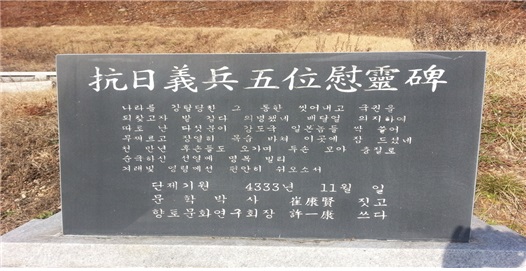 抗日義兵五位慰靈碑
나라를 강탈당한 그 통한 씻어내고 국권을
되찾고자 발 딛다 의병됐네 배달얼 의지하여
따로 난 다섯분이 강도국 일본놈들
무찌르고 장렬히 목숨 바쳐 이곳에 잠 드셨네
천 만년 후손들도 오가며 두손 모아 충절로
순국하신 선열께 명복 빌리
겨레빛 영령에선 편안히 쉬오소서
단제기원 4333년 11월 일
문학박사 崔康賢 짓고
향토문화연구회장 許一康 쓰다